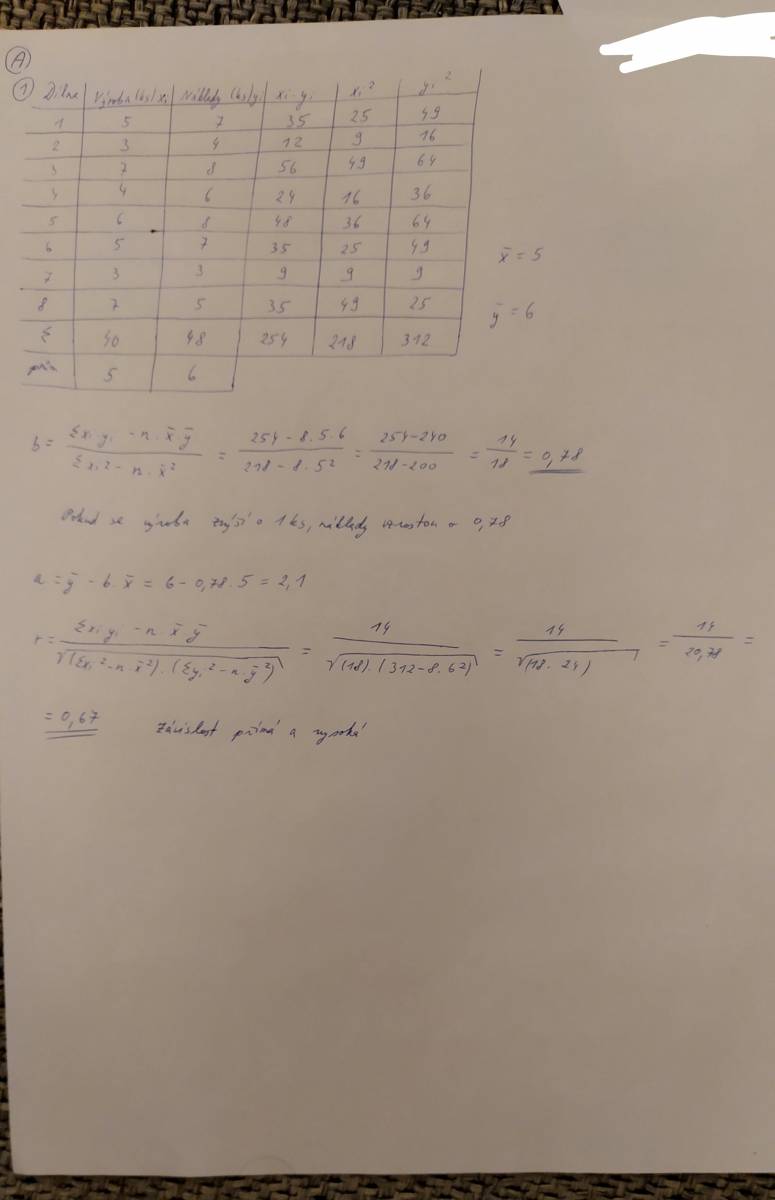 A
1 Dílna Výroba (ks) xi Náklady (ks) yi xi · yi xi² yi²
1 5 7 35 25 49
2 3 4 12 9 16
3 7 8 56 49 64
4 4 6 24 16 36
5 6 8 48 36 64
6 5 7 35 25 49
7 3 3 9 9 9
8 7 5 35 49 25
Σ 40 48 254 218 312
prům 5 6
x̄ = 5
ȳ = 6
b = (Σxi yi - n · x̄ ȳ) / (Σxi² - n · x̄²) = (254 - 8 . 5 . 6) / (218 - 8 . 5²) = (254 - 240) / (218 - 200) = 14/18 = 0,78
Pokud se výroba zvýší o 1 ks, náklady vzrostou o 0,78
a = ȳ - b . x̄ = 6 - 0,78 . 5 = 2,1
r = (Σxi yi - n . x̄ ȳ) / √((Σxi² - n . x̄²) . (Σyi² - n . ȳ²)) = 14 / √((18) . (312 - 8 . 6²)) = 14 / √(18 . 24) = 14 / 20,78 =
= 0,67 Závislost přímá a vysoká